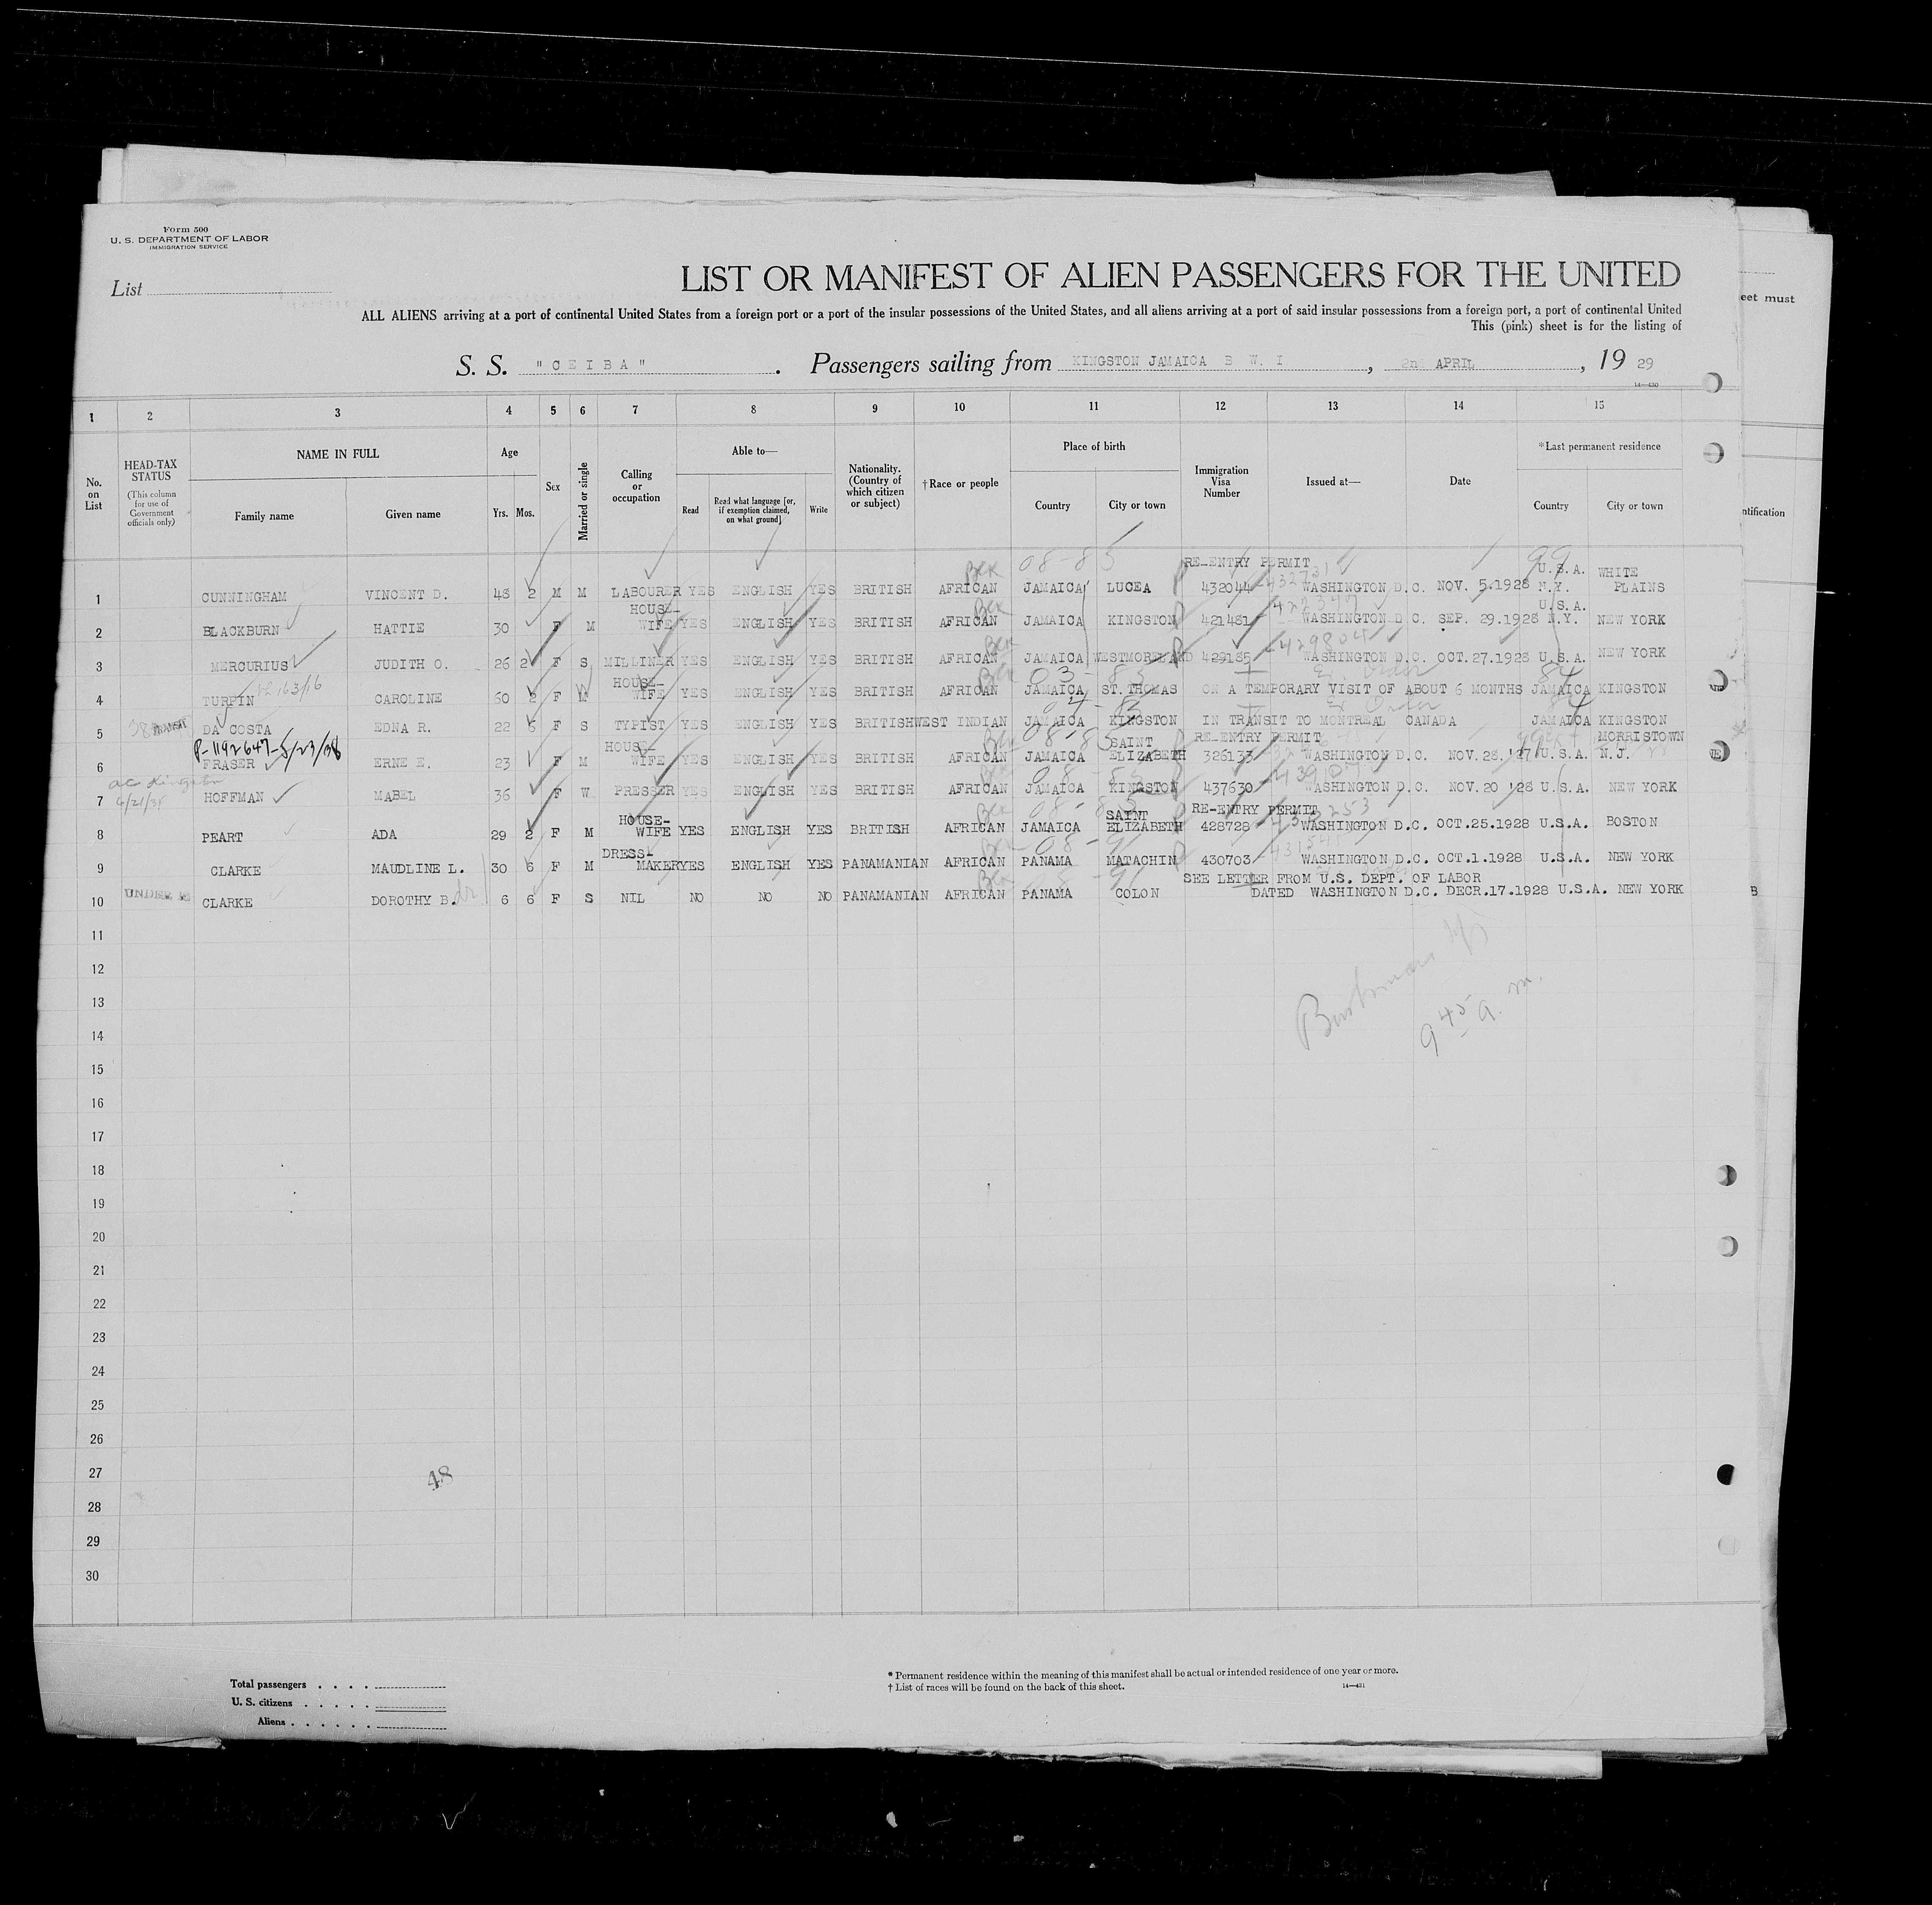 Form 500
U. S. DEPARTMENT OF LABOR
IMMIGRATION SERVICE
List
LIST OR MANIFEST OF ALIEN PASSENGERS FOR THE UNITED
ALL ALIENS arriving at a port of continental United States from a foreign port or a port of the insular possessions of the United States, and all aliens arriving at a port of said insular possessions from a foreign port, a port of continental United
This (pink) sheet is for the listing of
eet must
S. S. "CEIBA". Passengers sailing from KINGSTON JAMAICA B W. I, 2nd APRIL, 19 29
14—430
1 2 3 4 5 6 7 8 9 10 11 12 13 14 15
No. on List
HEAD-TAX STATUS (This column for use of Government officials only)
NAME IN FULL
Family name
Given name
Age
Yrs. Mos.
Sex
Married or single
Calling or occupation
Able to—
Read
Read what language [or, if exemption claimed, on what ground]
Write
Nationality. (Country of which citizen or subject)
†Race or people
Place of birth
Country
City or town
Immigration Visa Number
Issued at—
Date
*Last permanent residence
Country
City or town
ntification
08-85 RE-ENTRY PERMIT 99
1 CUNNINGHAM VINCENT D. 48 2 M M LABOURER YES ENGLISH YES BRITISH AFRICAN JAMAICA LUCEA 432044 WASHINGTON D.C. NOV. 5.1928 U.S.A. N.Y. WHITE PLAINS
2 BLACKBURN HATTIE 30 F M HOUSE-WIFE YES ENGLISH YES BRITISH AFRICAN JAMAICA KINGSTON 421481 WASHINGTON D.C. SEP. 29.1928 U.S.A. N.Y. NEW YORK
429804
3 MERCURIUS JUDITH O. 26 2 F S MILLINER YES ENGLISH YES BRITISH AFRICAN JAMAICA WESTMORELAND 429185 WASHINGTON D.C. OCT.27.1928 U.S.A. NEW YORK
03-83 84
4 TURPIN CAROLINE 60 2 F M HOUSE-WIFE YES ENGLISH YES BRITISH AFRICAN JAMAICA ST.THOMAS ON A TEMPORARY VISIT OF ABOUT 6 MONTHS JAMAICA KINGSTON
5 TRANSIT DA COSTA EDNA R. 22 6 F S TYPIST YES ENGLISH YES BRITISH WEST INDIAN JAMAICA KINGSTON IN TRANSIT TO MONTREAL CANADA JAMAICA KINGSTON
P-1192647-5/23/38 08-85 RE-ENTRY PERMIT
6 FRASER ERNE E. 23 F M HOUSE-WIFE YES ENGLISH YES BRITISH AFRICAN JAMAICA SAINT ELIZABETH 326133 WASHINGTON D.C. NOV.28.'27 U.S.A. MORRISTOWN N.J.
7 HOFFMAN MABEL 36 F W PRESSER YES ENGLISH YES BRITISH AFRICAN JAMAICA KINGSTON 437630 WASHINGTON D.C. NOV.20 '28 U.S.A. NEW YORK
RE-ENTRY PERMIT
8 PEART ADA 29 2 F M HOUSE-WIFE YES ENGLISH YES BRITISH AFRICAN JAMAICA SAINT ELIZABETH 428728 WASHINGTON D.C. OCT.25.1928 U.S.A. BOSTON
9 CLARKE MAUDLINE L. 30 6 F M DRESS-MAKER YES ENGLISH YES PANAMANIAN AFRICAN PANAMA MATACHIN 430703 WASHINGTON D.C. OCT.1.1928 U.S.A. NEW YORK
SEE LETTER FROM U.S. DEPT. OF LABOR
10 UNDER 16 CLARKE DOROTHY B. 6 6 F S NIL NO NO NO PANAMANIAN AFRICAN PANAMA COLON DATED WASHINGTON D.C. DECR.17.1928 U.S.A. NEW YORK B
11
12
13
9 45 a. m.
14
15
16
17
18
19
20
21
22
23
24
25
26
27
48
28
29
30
Total passengers . . . .
U. S. citizens . . . . .
Aliens . . . . . .
* Permanent residence within the meaning of this manifest shall be actual or intended residence of one year or more.
† List of races will be found on the back of this sheet.
14—431